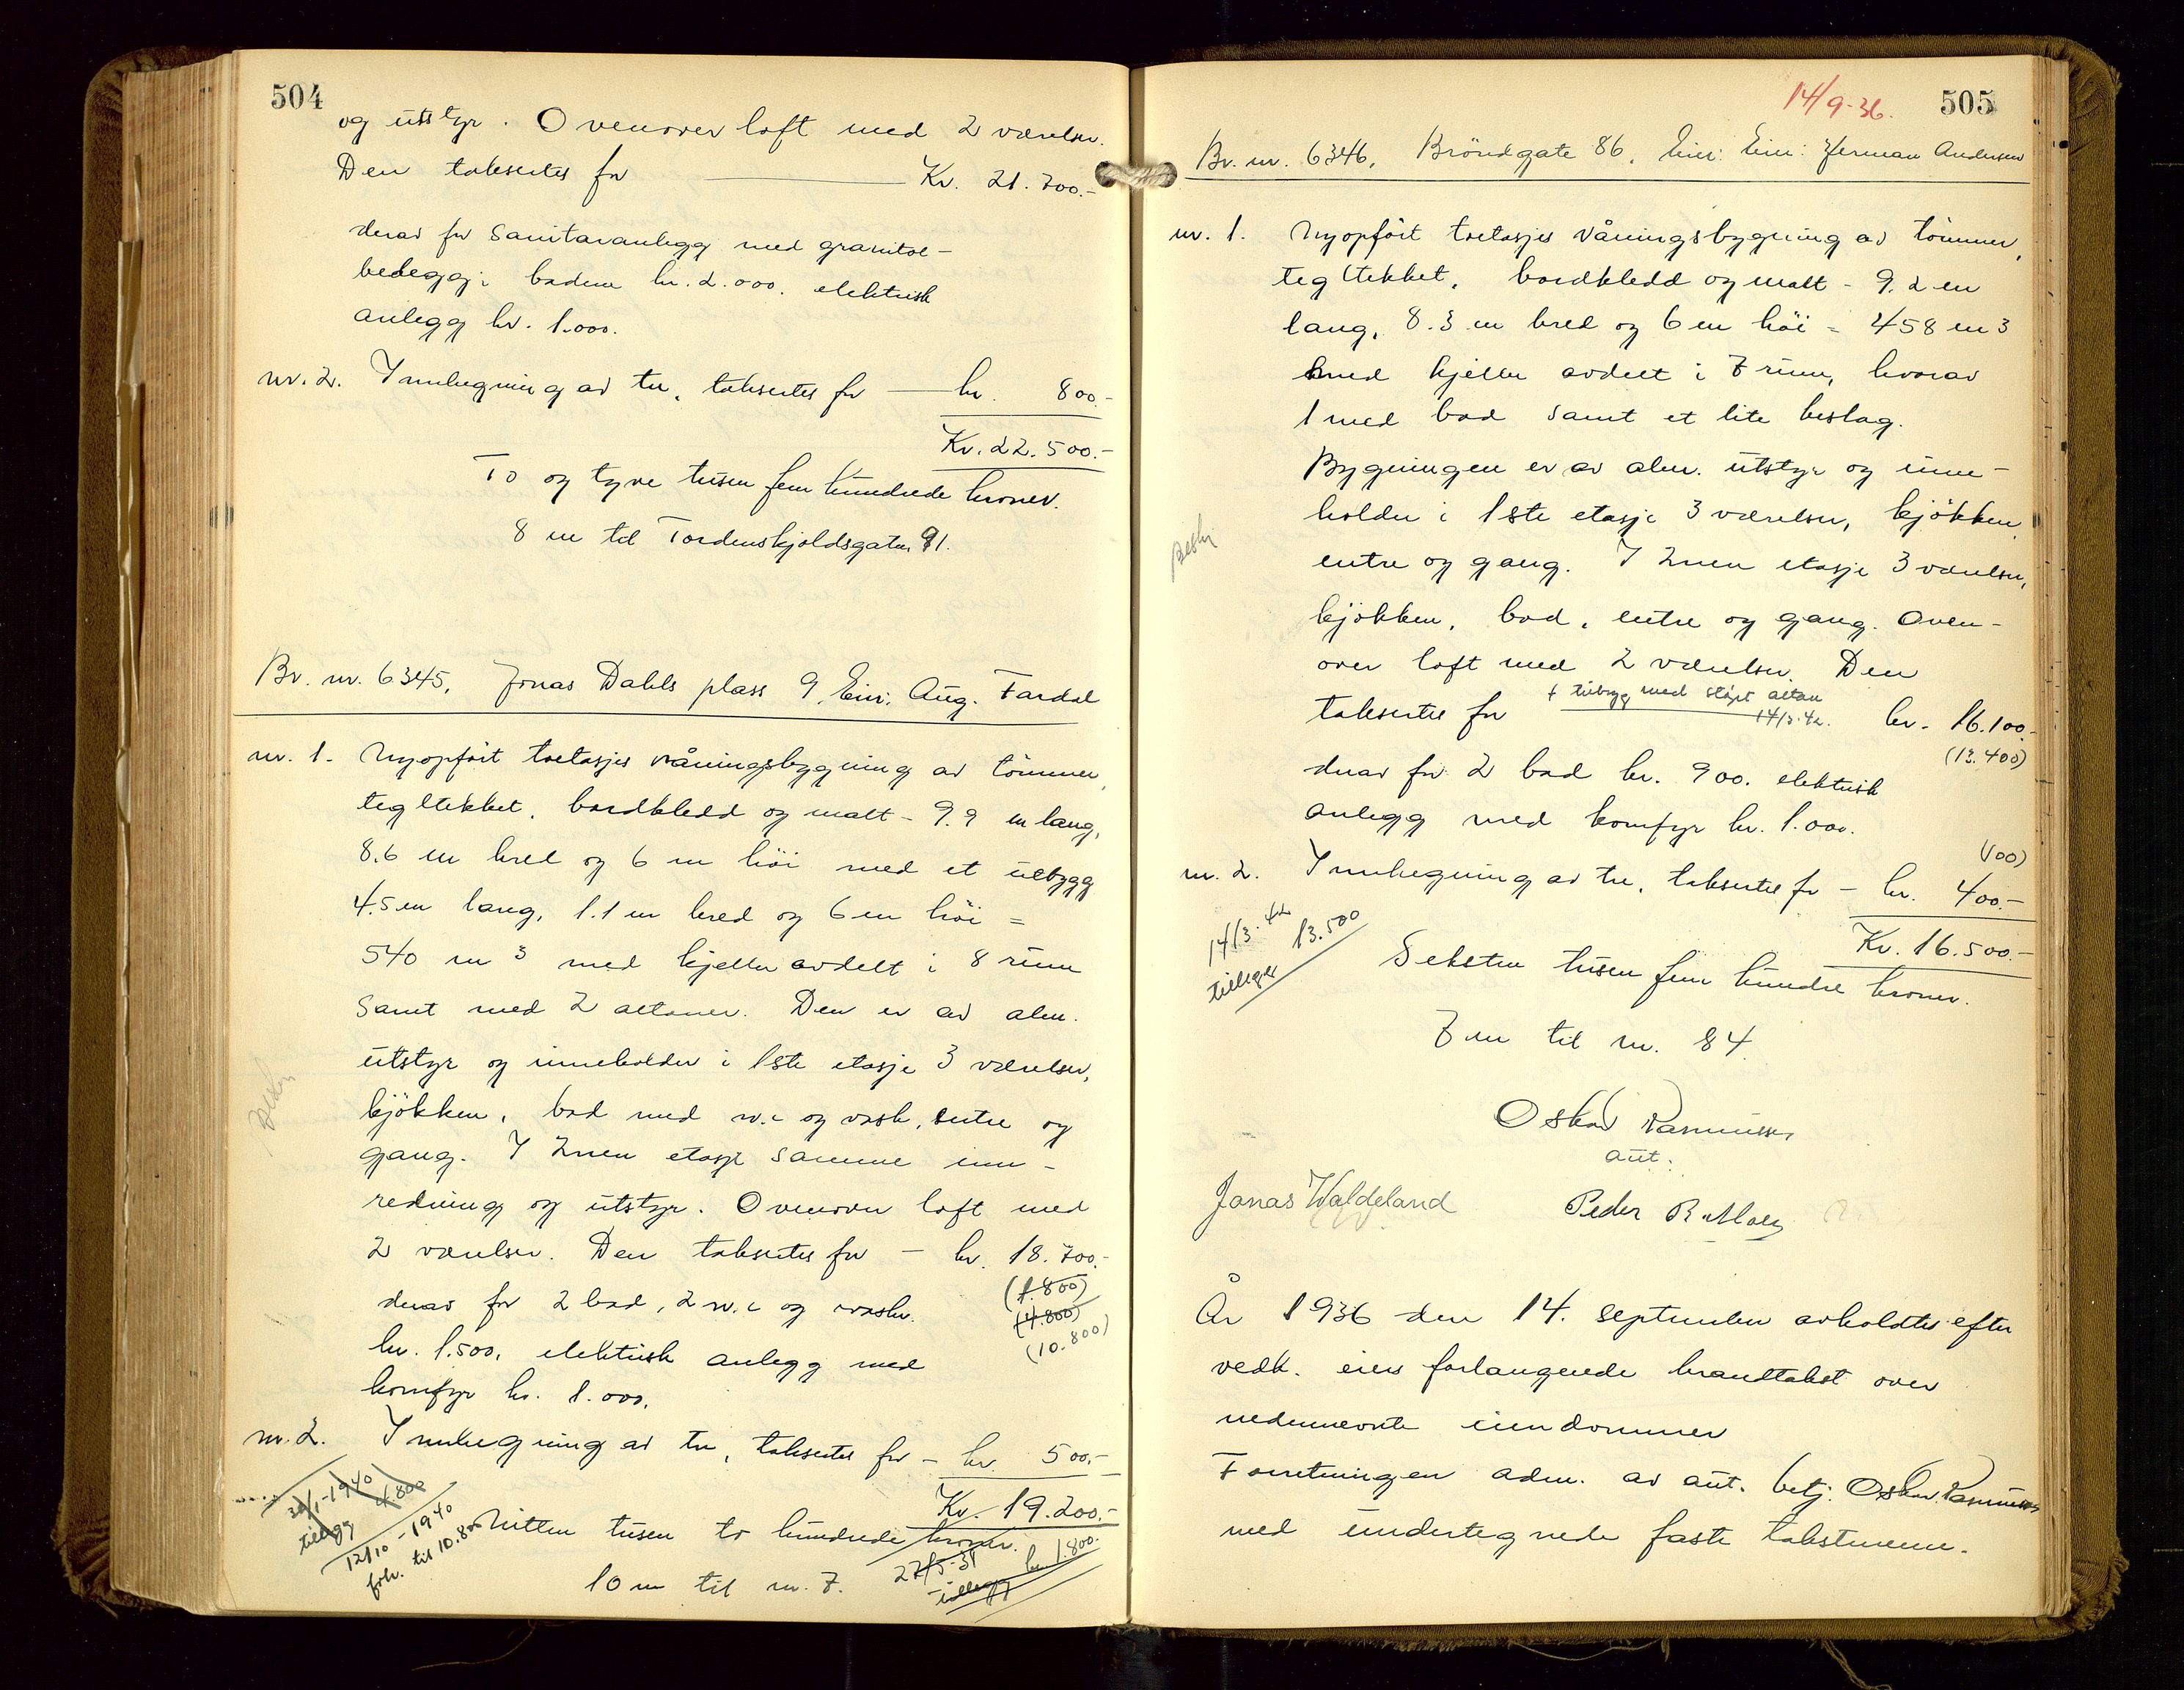 504
og utstyr. Ovenover loft med 2 værelser.
Den takseres for Kr. 21.700.-
derav for sanitæranlegg med granitol-
belegg i badene kr. 2.000. elektrisk
anlegg kr. 1.000.
nr. 2. Innhegning av tre, takseres for kr. 800.-
Kr. 22.500.-
To og tyve tusen fem hundrede kroner.
8 m til Tordenskjoldsgaten 91.
Br. nr. 6345. Jonas Dahls plass 9, Eier: Aug. Fardal
nr. 1. Nyopført toetasjes våningsbygning av tømmer,
tegltekket, bordkledd og malt - 9.9 m lang,
8.6 m bred og 6 m høi med et utbygg
4.5 m lang, 1.1 m bred og 6 m høi =
540 m3 med kjeller avdelt i 8 rum
samt med 2 altaner. Den er av alm.
utstyr og inneholder i 1ste etasje 3 værelser,
kjøkken, bad med w.c og vask, entre og
gang. I 2nen etasje samme inn-
redning og utstyr. Ovenover loft med
2 værelser. Den takseres for - kr. 18.700.-
(1.800)
derav for 2 bad, 2 w.c og vasker.
(4.800)
kr. 1.500, elektrisk anlegg med
(10.800)
komfyr kr. 1.000.
nr. 2. Innhegning av tre, takseres for - kr. 500.-
Kr. 19.200.-
Nitten tusen to hundrede kroner.
10 m til nr. 7.
4.800
tillegg
12/10-1940
forh. til 10.800
tillegg kr 1.800.-
14/9-36.
505
Br. nr. 6346, Brøndgate 86, Eier: Eier: Herman Andersen
nr. 1. Nyopført toetasjes våningsbygning av tømmer,
tegltekket, bordkledd og malt - 9.2 m
lang, 8.3 m bred og 6 m høi = 458 m3
med kjeller avdelt i 7 rum, hvorav
1 med bad samt et lite beslag.
Bygningen er av alm. utstyr og inne-
holder i 1ste etasje 3 værelser, kjøkken,
entre og gang. I 2nen etasje 3 værelser,
kjøkken, bad, entre og gang. Oven-
over loft med 2 værelser. Den
+ tilbygg med støpt altan
14/3.42.
takseres for kr. 16.100.-
(13.400)
derav for 2 bad kr. 900. elektrisk
anlegg med komfyr kr. 1.000.
(100)
nr. 2. Innhegning av tre, takseres for - kr. 400.-
Kr. 16.500.-
14/3.42
tillegg 13.500
Seksten tusen fem hundre kroner.
7 m til nr. 84.
Oskar Rasmussen
aut.
Jonas Waldeland
Peder
År 1936 den 14. september avholdtes efter
vedk. eiers forlangende brandtakst over
nedennevnte eiendommer
Forretningen adm. av aut. betj. Oskar Rasmussen
med undertegnede faste takstmenn.